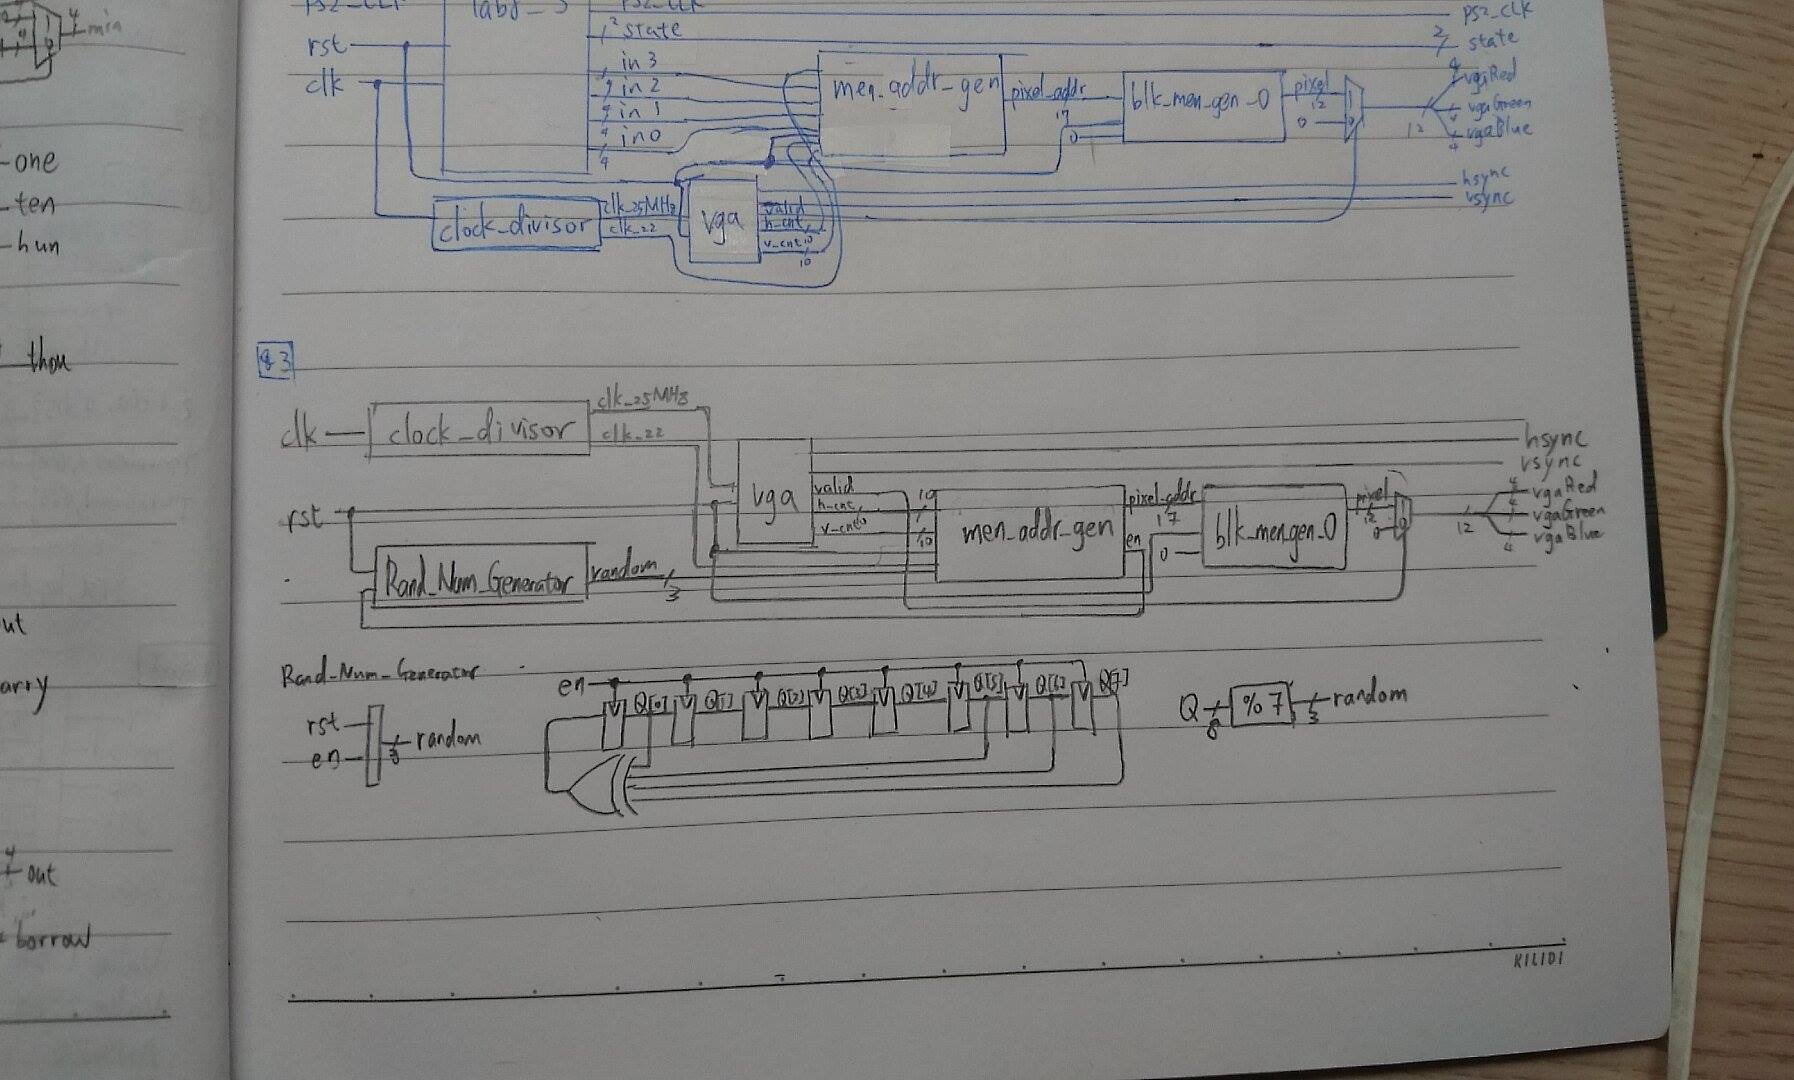 4 min
one
ten
hun
thou
arry
4 out
borrow
lab8_3
ps2_clk
rst
clk
2 state
in 3
4 in 2
4 in 1
4 in0
4
men_addr_gen
pixel_addr
17
0
blk_men_gen_0
pixel
12
0
1
0
12
ps2_clk
2 state
4 vgaRed
vgaGreen
4 vgaBlue
hsync
vsync
clock_divisor
clk_25MHz
clk_22
vga
valid
h_cnt
v_cnt 10
10
Q3
clk
clock_divisor
clk_25MHz
clk_22
rst
vga
valid
h_cnt
v_cnt
10
10
men_addr_gen
pixel_addr
17
en
0
blk_men_gen_0
pixel
12
0
12
hsync
vsync
4 vgaRed
vgaGreen
4 vgaBlue
Rand_Num_Generator
random
3
Rand_Num_Generator
rst
en
3 random
en
Q[0] Q[1] Q[2] Q[3] Q[4] Q[5] Q[6] Q[7]
Q 8 % 7 3 random
KILIDI